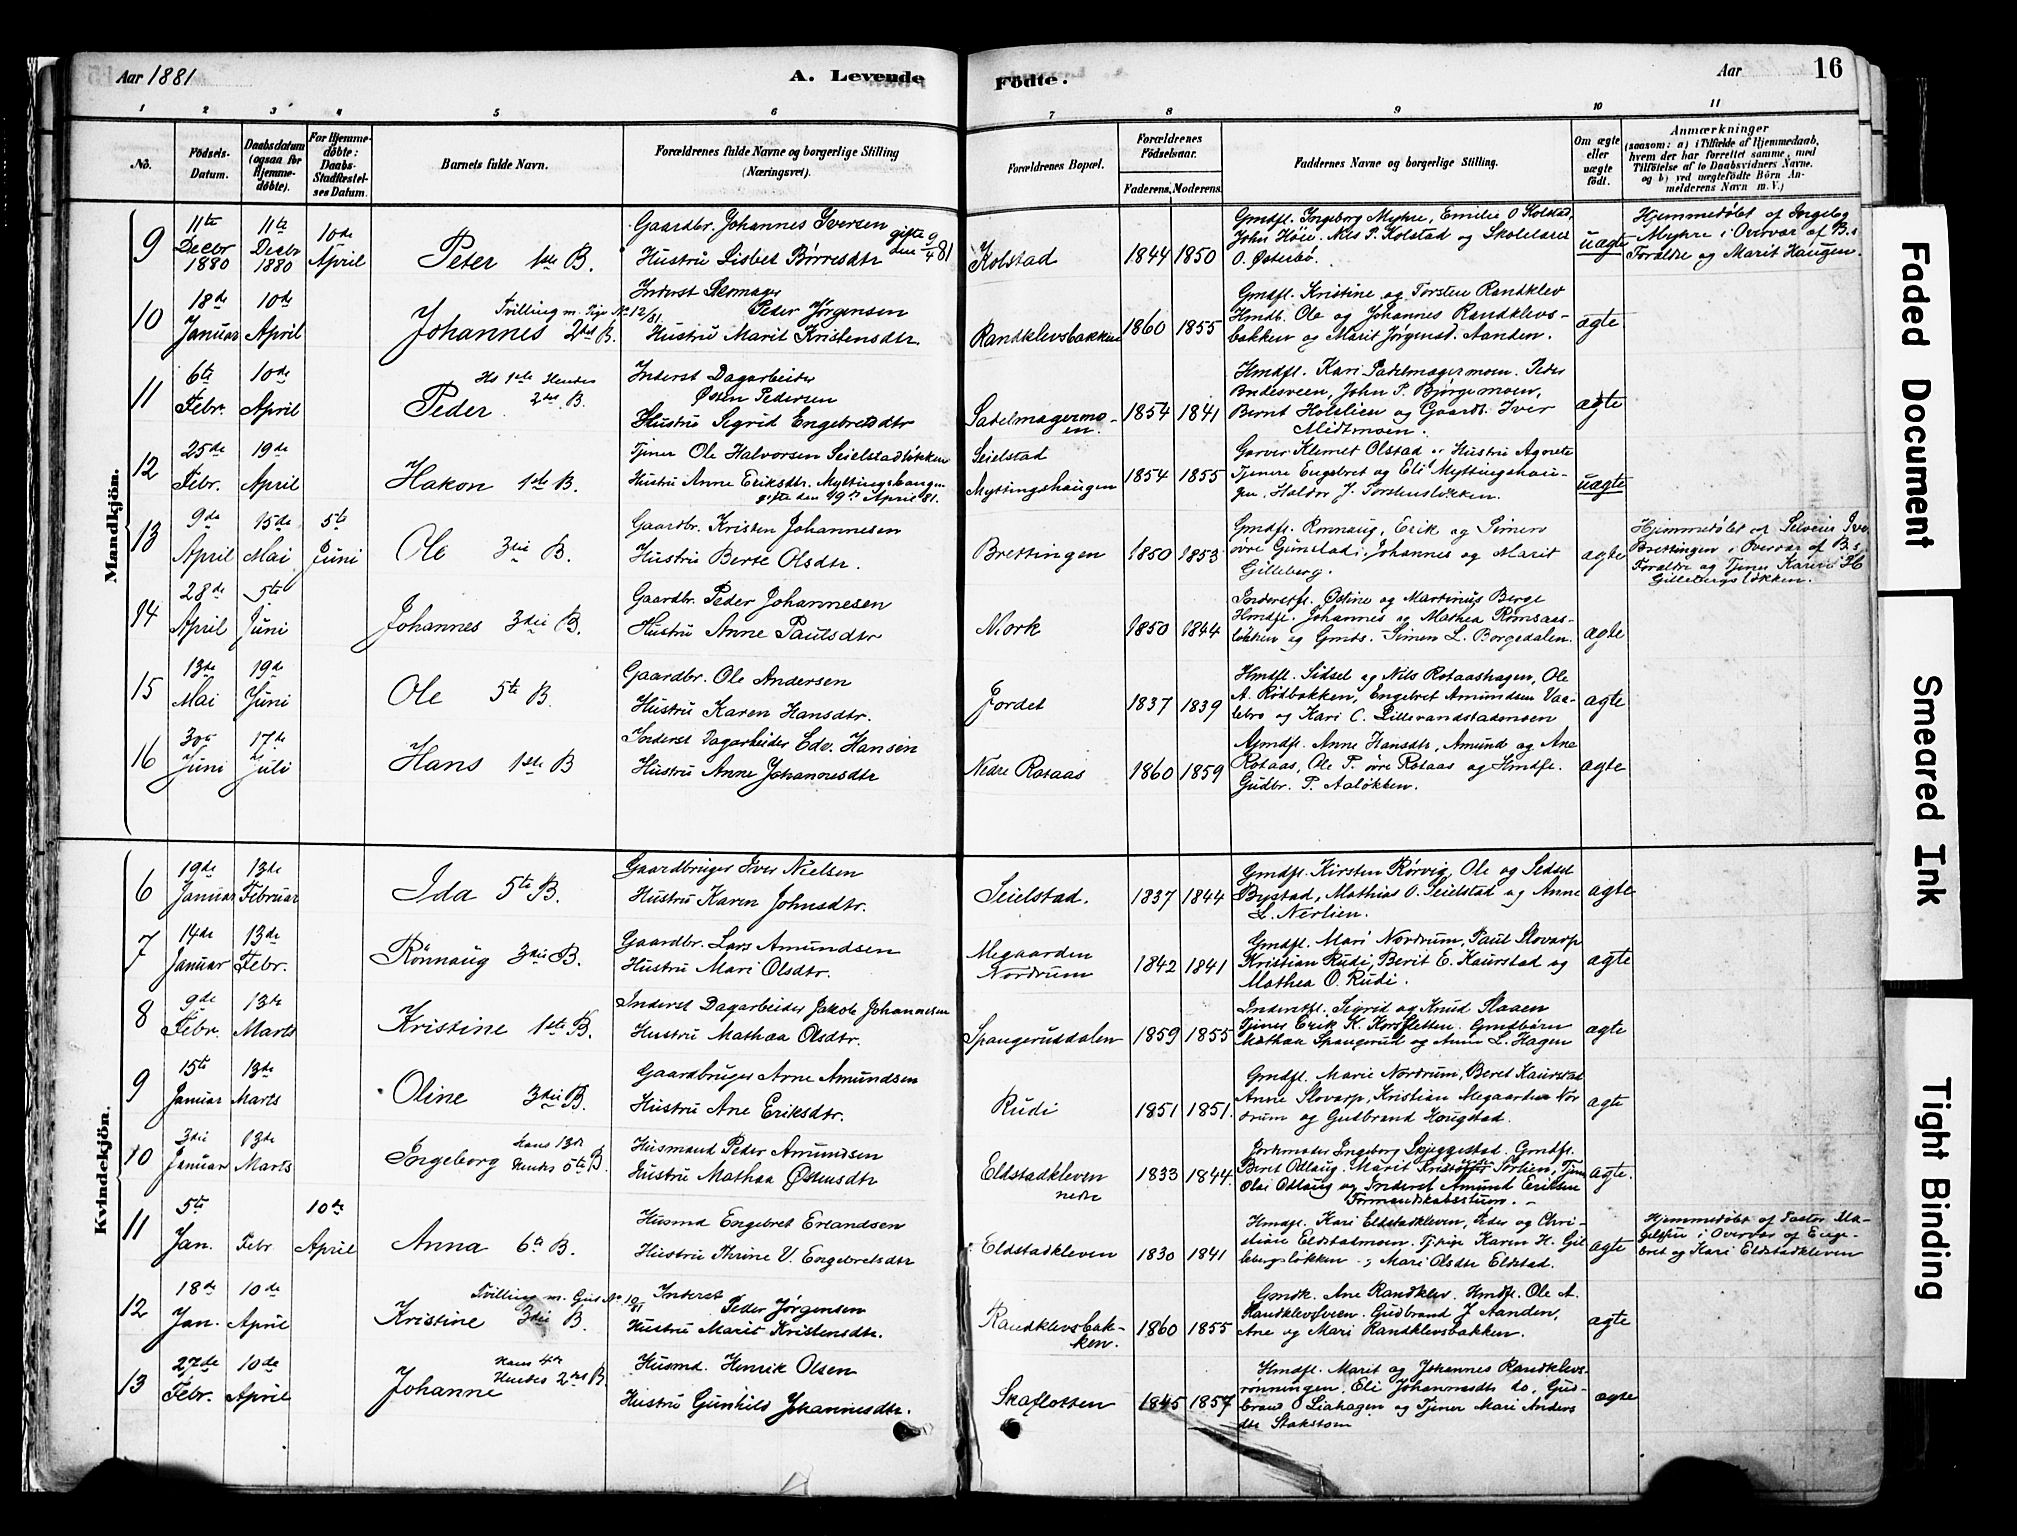 Aar 1881
A. Levende
Födte.
Aar
16
1 2 3 4 5 6 7 8 9 10 11
No.
Födsels-Datum.
Daabsdatum (ogsaa for Hjemmedöbte).
For Hjemmedöbte: Daabs-Stadfæstelses Datum.
Barnets fulde Navn.
Forældrenes fulde Navne og borgerlige Stilling (Næringsvei).
Forældrenes Bopæl.
Forældrenes Födselsaar.
Faderens. Moderens.
Faddernes Navne og borgerlige Stilling.
Om ægte eller uægte födt.
Anmærkninger
(saasom: a) i Tilfælde af Hjemmedaab, hvem der har forrettet samme, med Tilföielse af to Daabsvidners Navne, og b) ved uægtefödte Börn Anmelderens Navn m. V.)
Mandkjön.
9 11te Decbr 1880 11te Decbr 1880 10de April Peter 1ste B.
Gaardbr. Johannes Iversen
Hustru Lisbet Børresdtr gifte den 9/4 81
Kolstad 1844 1850
Gmdfl. Ingeborg Myhre, Emilie O Kolstad,
John Høie. Nils P. Kolstad og Skolelærer
O. Østerbø.
uægte
Hjemmedøbt af Ingebg
Myhre i Overvær af B.s
Forældre og Marit Haugen.
10 18de Januar 10de April
Tvilling m. Pige No 12/81.
Johannes 2det B.
Inderst Skomager
Peder Jørgensen
Hustru Marit Kristensdtr.
Randklevsbakken 1860 1855
Gmdfl. Kristine og Torsten Randklev
Hmdb. Ole og Johannes Randklevs-
bakken og Marit Jørgensd. Aanden.
ægte
11 6te Febr. 10de April
Hs 1ste Hendes
Peder 2det B.
Inderst Dagarbeider
Østen Pedersen
Hustru Sigrid Engebretsdtr
Sadelmagermo-
en. 1854 1841
Hmdfl. Kari Sadelmagermoen. Peder
Bredesveen, John P. Bjørgemoen,
Bernt Holslien og Gaards. Iver
Midtmoen.
ægte
12 25de Febr. 19de April Hakon 1ste B.
Tjener Ole Halvorsen Seielstadløkken
Hustru Anne Eriksdtr. Myttingshaugen
gifte den 19de April 81.
Seielstad
Myttingshaugen 1854 1855
Garver Klemet Olstad Hustru Agnete
Tjenere Engebret og Eli Myttingshau-
gen, Haldor J. Torstensløkken.
uægte
13 9de April 15de Mai 5te Juni Ole 3die B.
Gaardbr. Kristen Johannesen
Hustru Berte Olsdtr.
Brettingen 1850 1853
Gmdfl. Rønnaug, Erik og Simen
øvre Gunstad, Johannes og Marit
Gilleberg.
ægte
Hjemmedøbt af
Brettingen i Overvær af B.s
Forældre og Tjener Karen H
Gillebergsløkken.
14 28de April 5te Juni Johannes 3die B.
Gaardbr. Peder Johannesen
Hustru Anne Paulsdtr
Mork 1850 1844
Inderstfl. Østine og Martinus Berge
Hmdfl. Johannes og Mathea Romsaas-
løkken og Gmds. Simen L. Borgedalen.
ægte
15 13de Mai 19de Juni Ole 5te B.
Gaardbr. Ole Andersen
Hustru Karen Hansdtr.
Jordet 1837 1839
Hmdfl. Sidsel og Nils Rotaashagen, Ole
A. Rødbakken, Engebret Amundsen Vaa-
lebro og Kari C. Lillevandstadenden
ægte
16 Juni 17de Juli Hans 1ste B
Inderst Dagarbeider Edv. Hansen
Hustru Anne Johannesdtr
Nedre Rotaas 1860 1859
Gmdfl. Anne Hansdtr, Amund og Ane
Rotaas, Ole P. øvre Rotaas og Hmdfl.
Gudbr. P. Aaløkken.
ægte
Kvindekjön.
6 19de Januar 13de Februar Ida 5te B.
Gaardbruger Iver Nielsen
Hustru Karen Johnsdtr.
Seielstad. 1837 1844
Gmdfl. Kirsten Rørvig, Ole og Sidsel
Bystad, Mathias O. Seielstad og Anne
L. Nerlien.
ægte
7 14de Januar 13de Febr. Rönnaug 3die B.
Gaardbr. Lars Amundsen
Hustru Mari Olsdtr.
Megaarden
Nordrum 1842 1841
Gmdfl. Mari Nordrum, Paul Slovarp
Kristian Rudi, Berit E. Kaurstad og
Mathea O. Rudi.
ægte
8 9de Febr. 13de Marts Kristine 1ste B.
Inderst Dagarbeider Jakob Johannesen
Hustru Mathea Olsdtr.
Spangeruddalen 1859 1855
Inderstfl. Sigrid og Knud Slaaen
Tjener Erik K. Korsfletten. Gmdbørn
Mathea Spangerud og Anne L. Hagen
ægte
9 15te Januar 13de Marts Oline 3die B.
Gaardbruger Arne Amundsen
Hustru Ane Eriksdtr.
Rudi 1851 1851.
Gmdfl. Marie Nordrum, Beret Kaurstad
Anne Slovarp, Kristian Megaarden Nor
drum og Gudbrand Hougstad.
ægte
10 3die Januar 13de Marts
Hans 13de
Ingeborg Hendes 5te B.
Husmand Peder Amundsen
Hustru Mathea Østensdtr
Eldstadkleven
nedre 1833 1844.
Jordmoder Ingeborg Skjeggestad. Gmdfl.
Beret Odlaug. Marit Sørlien, Tjener
Olai Odlaug og Inderst Amund Eriksen
Formandskabsstuen.
ægte.
11 5te Jan. Febr. 10de April Anna 6te B.
Husmd Engebret Erlandsen
Hustru Thrine V. Engebretsdtr
Eldstadkleven 1830 1841
Hmdfl. Kari Eldstadkleven, Peder og Chri-
stian Eldstadmoen. Tj.pige Karen H. Gil
lebergsløkken og Mari Olsdtr Eldstad.
ægte
Hjemmedøbt af Pastor Ma-
gelssen i Overvær af Enge-
bret og Kari Eldstadkleven
12 18de Jan. 10de April
Tvilling m. Gut No 10/81
Kristine 3die B.
Inderst
Peder Jørgensen
Hustru Marit Kristensdtr.
Randklevsbak-
ken. 1860 1855
Gmdk. Ane Randklev. Hmdfl. Ole A.
Randklevsveen. Gudbrand J Aanden,
Ane og Mari Randklevsbakken.
ægte
13 27de Febr. 10de April
Hans 4de
Johanne Hendes 2det B.
Husmd. Henrik Olsen
Hustru Gunhild Johannesdtr.
Skaflotten 1845 1857
Hmdfl. Marit og Johannes Randklevs-
rønningen. Eli Johannesdtr do, Gud-
brand O Liahagen og Tjener Mari Anders
dtr Stakston
ægte
Faded Document
Smeared Ink
Tight Binding